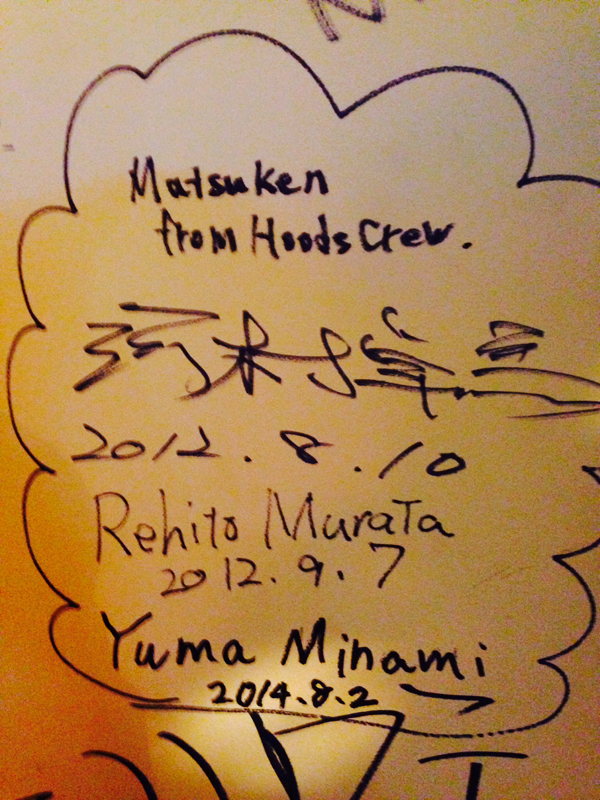 Matsuken
from Hoods Crew.
2012.8.10
Rehito Murata
2012.9.7
Yuma Minami
2014.8.2